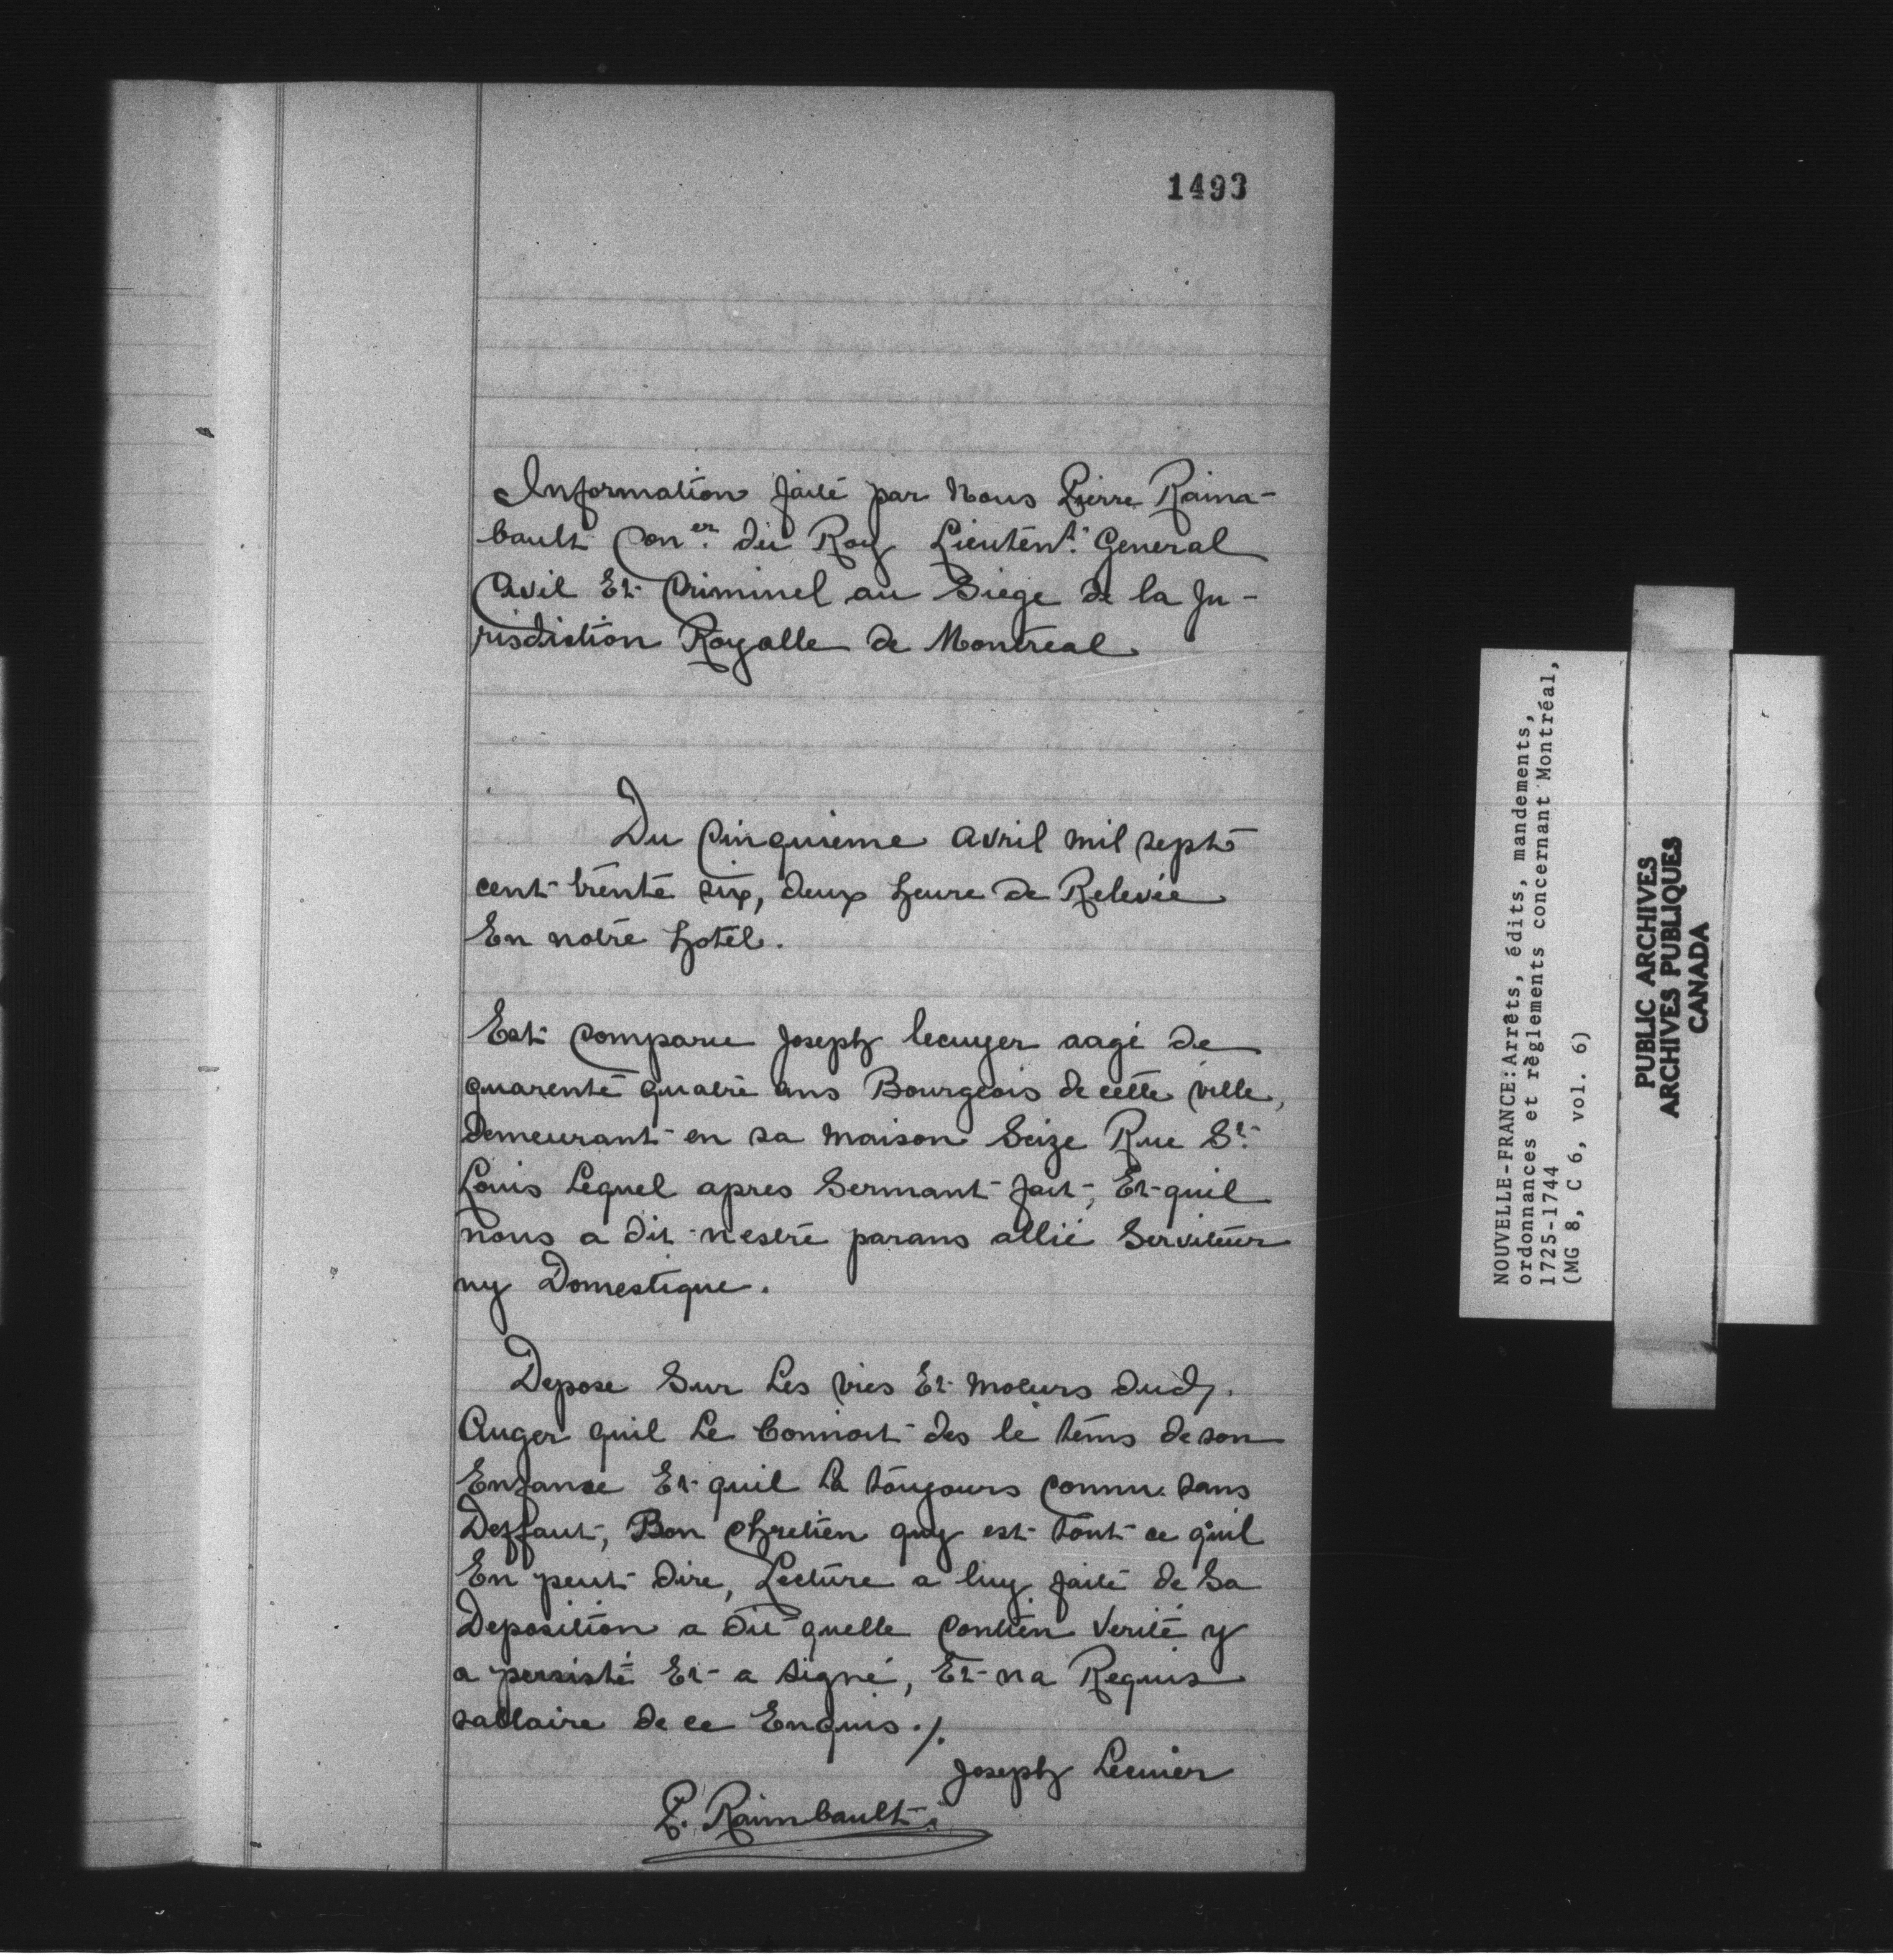 1493
Information faite par Nous Pierre Raima-
bault Con.er du Roy Lieuten.t General
Civil Et Criminel au Siege de la Ju-
risdiction Royalle de Montreal
Du Cinquieme avril mil sept
cent trente six, deux heure de Relevée
En notre hotel.
Est Comparu Joseph lecuyer aagé de
quarente quatre ans Bourgeois de cette ville,
Demeurant en sa maison Seize Rue St.
Louis Lequel apres Sermant fait, Et quil
nous a dit nestre parans allié Serviteur
ny Domestique.
Depose Sur Les vies Et moeurs dud.
Auger quil Le Connoit des le tems de son
Enfance Et quil La toujours Connu sans
Deffaut, Bon Chretien quy est tout ce quil
En peut dire, Lecture a luy faite de Sa
Deposition a dit quelle Contien Verité y
a persisté Et a signé, Et na Requis
sallaire de ce Enquis ./.
Joseph Lecuier
P. Raimbault
NOUVELLE-FRANCE: Arrêts, édits, mandements,
ordonnances et règlements concernant Montréal,
1725-1744
(MG 8, C 6, vol. 6)
PUBLIC ARCHIVES
ARCHIVES PUBLIQUES
CANADA